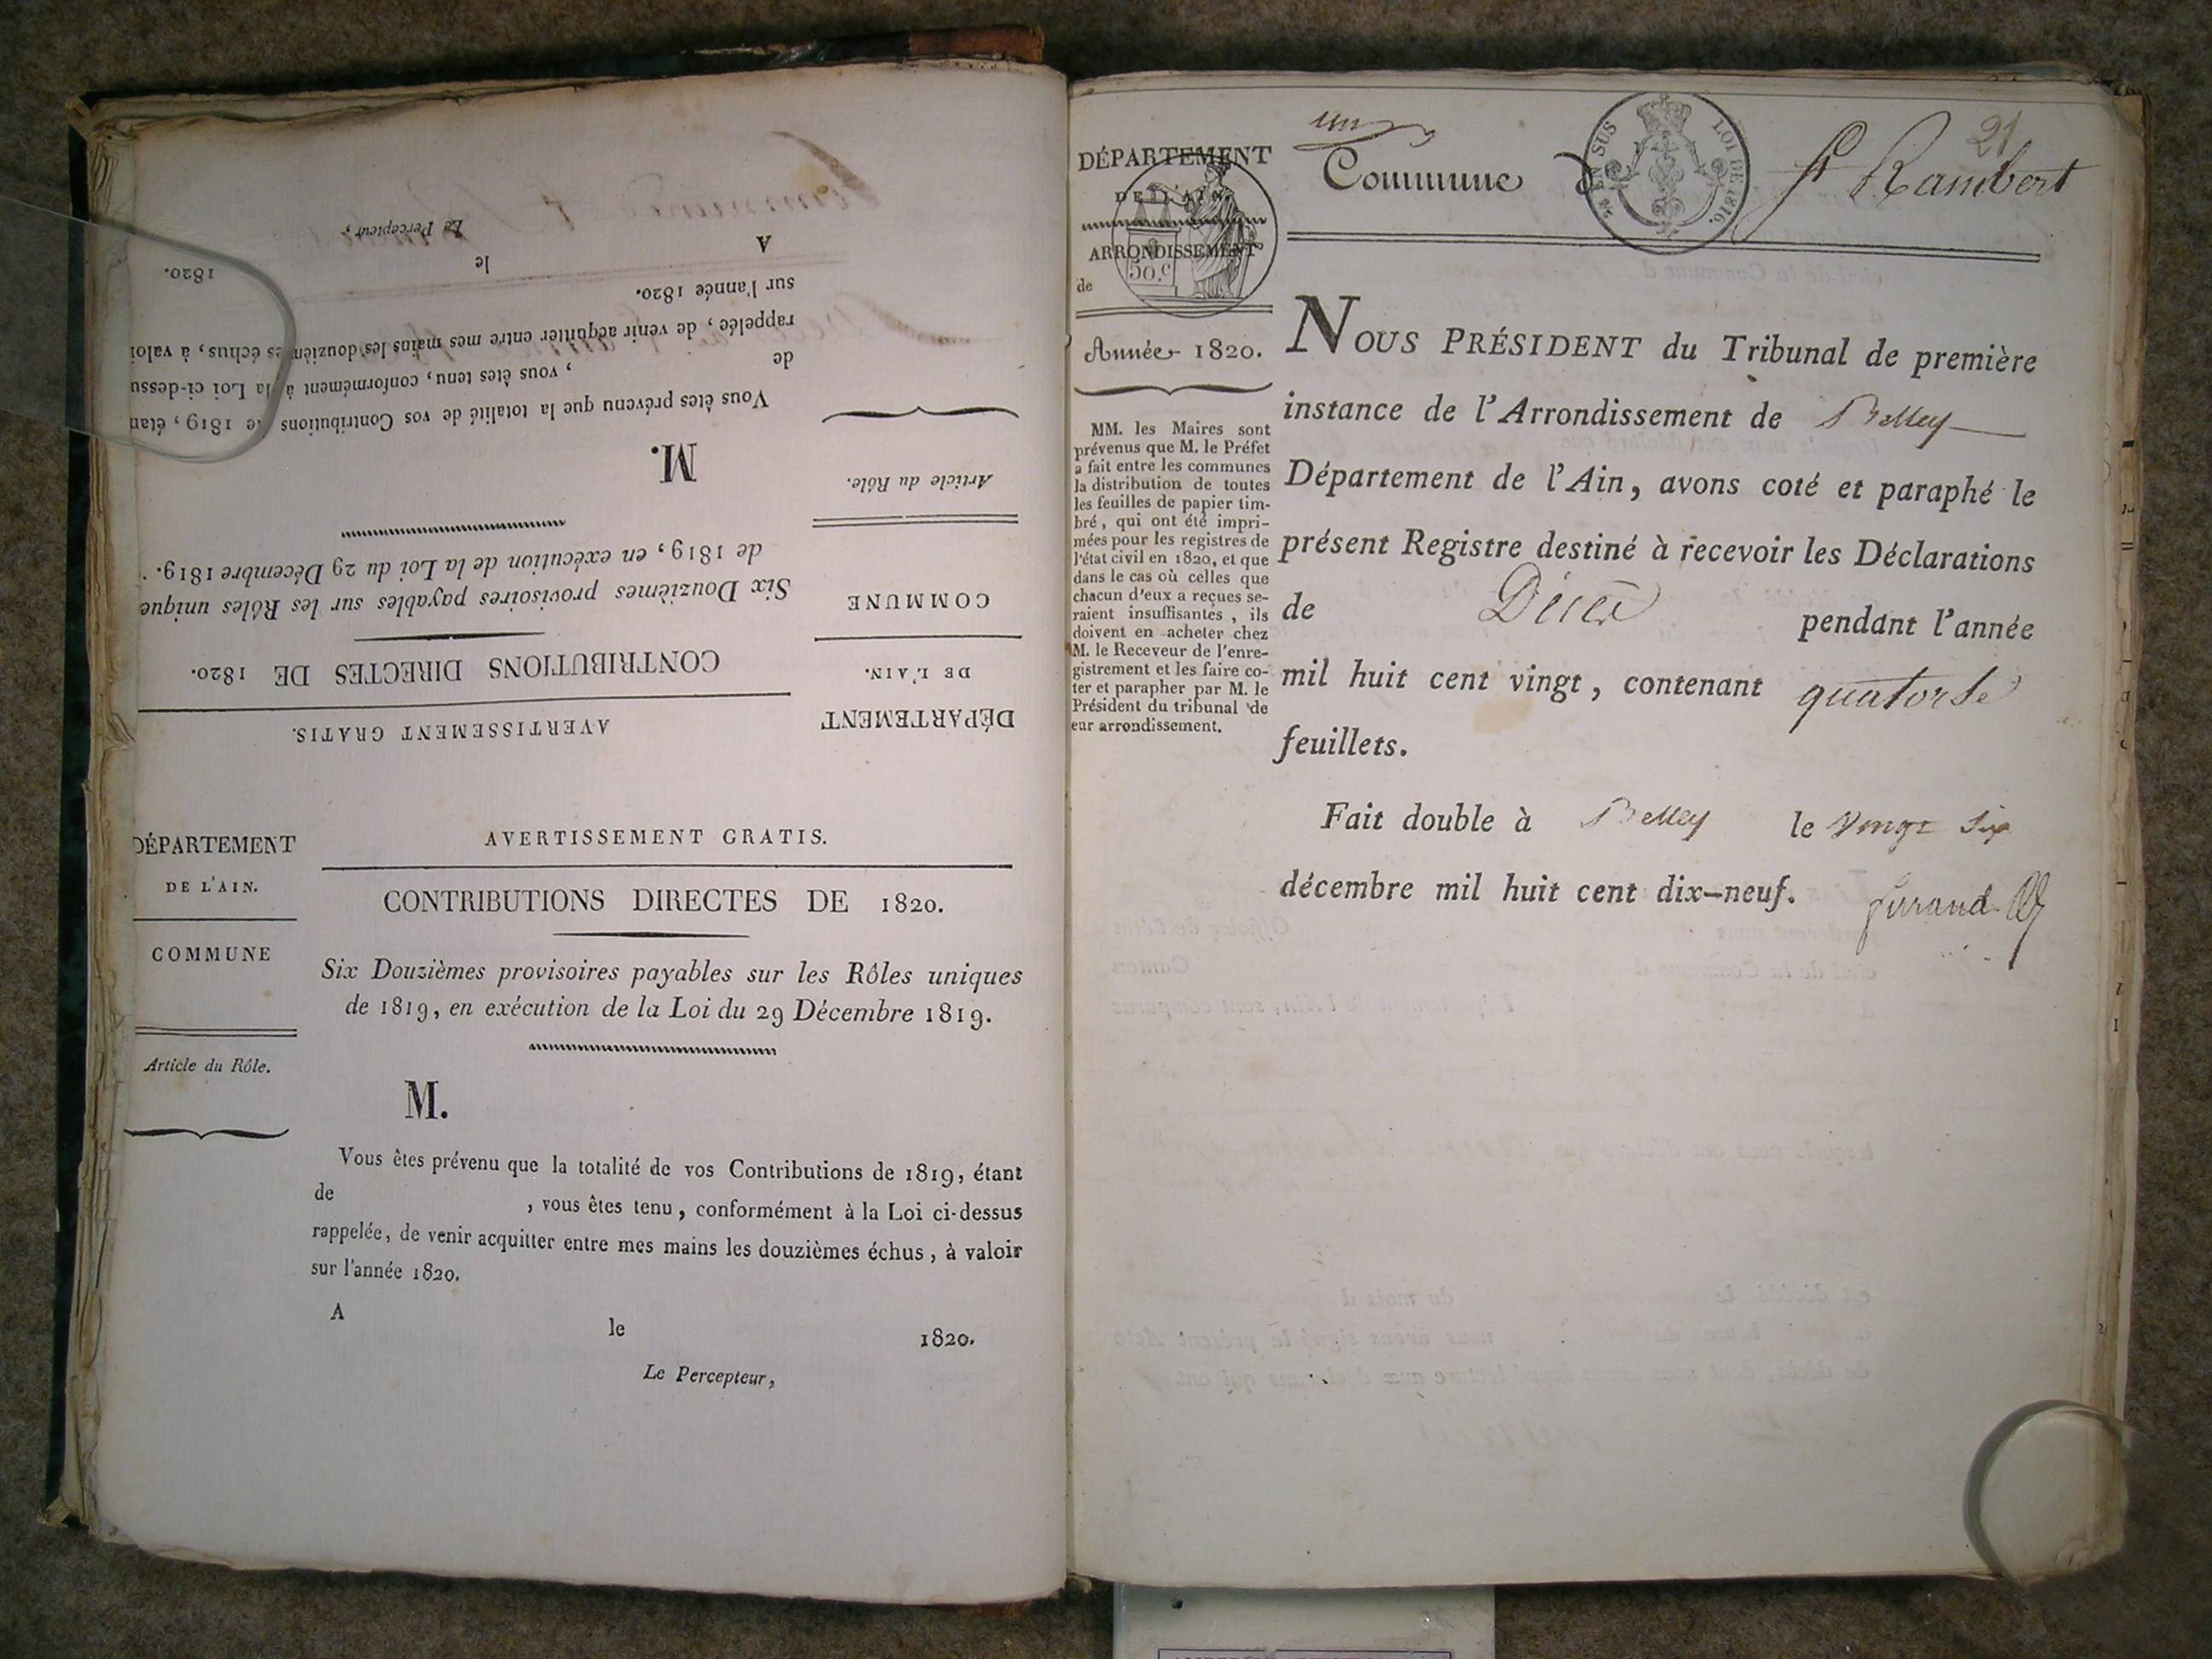 AVERTISSEMENT GRATIS.
DÉPARTEMENT
DE L'AIN.
COMMUNE
Article du Rôle.
CONTRIBUTIONS DIRECTES DE 1820.
Six Douzièmes provisoires payables sur les Rôles unique
de 1819, en exécution de la Loi du 29 Décembre 1819.
M.
Vous êtes prévenu que la totalité de vos Contributions de 1819, étan
de , vous êtes tenu, conformément à la Loi ci-dessu
rappelée, de venir acquitter entre mes mains les douzièmes échus, à valoi
sur l'année 1820.
A le 1820.
Le Percepteur,
DÉPARTEMENT
DE L'AIN.
COMMUNE
Article du Rôle.
AVERTISSEMENT GRATIS.
CONTRIBUTIONS DIRECTES DE 1820.
Six Douzièmes provisoires payables sur les Rôles uniques
de 1819, en exécution de la Loi du 29 Décembre 1819.
M.
Vous êtes prévenu que la totalité de vos Contributions de 1819, étant
de , vous êtes tenu, conformément à la Loi ci-dessus
rappelée, de venir acquitter entre mes mains les douzièmes échus, à valoir
sur l'année 1820.
A le 1820.
Le Percepteur,
DÉPARTEMENT
DE L'AIN
ARRONDISSEMENT
de
50.c
Année 1820.
MM. les Maires sont
prévenus que M. le Préfet
a fait entre les communes
la distribution de toutes
les feuilles de papier tim-
bré, qui ont été impri-
mées pour les registres de
l'état civil en 1820, et que
dans le cas où celles que
chacun d'eux a reçues se-
raient insuffisantes, ils
doivent en acheter chez
M. le Receveur de l'enre-
gistrement et les faire co-
ter et parapher par M. le
Président du tribunal de
eur arrondissement.
un
21
Commune d St Rambert
EN SUS LOI DE 1816.
NOUS PRÉSIDENT du Tribunal de première
instance de l'Arrondissement de Belley
Département de l'Ain, avons coté et paraphé le
présent Registre destiné à recevoir les Déclarations
de Décès pendant l'année
mil huit cent vingt, contenant quatorse
feuillets.
Fait double à Belley le vingt six
décembre mil huit cent dix-neuf.